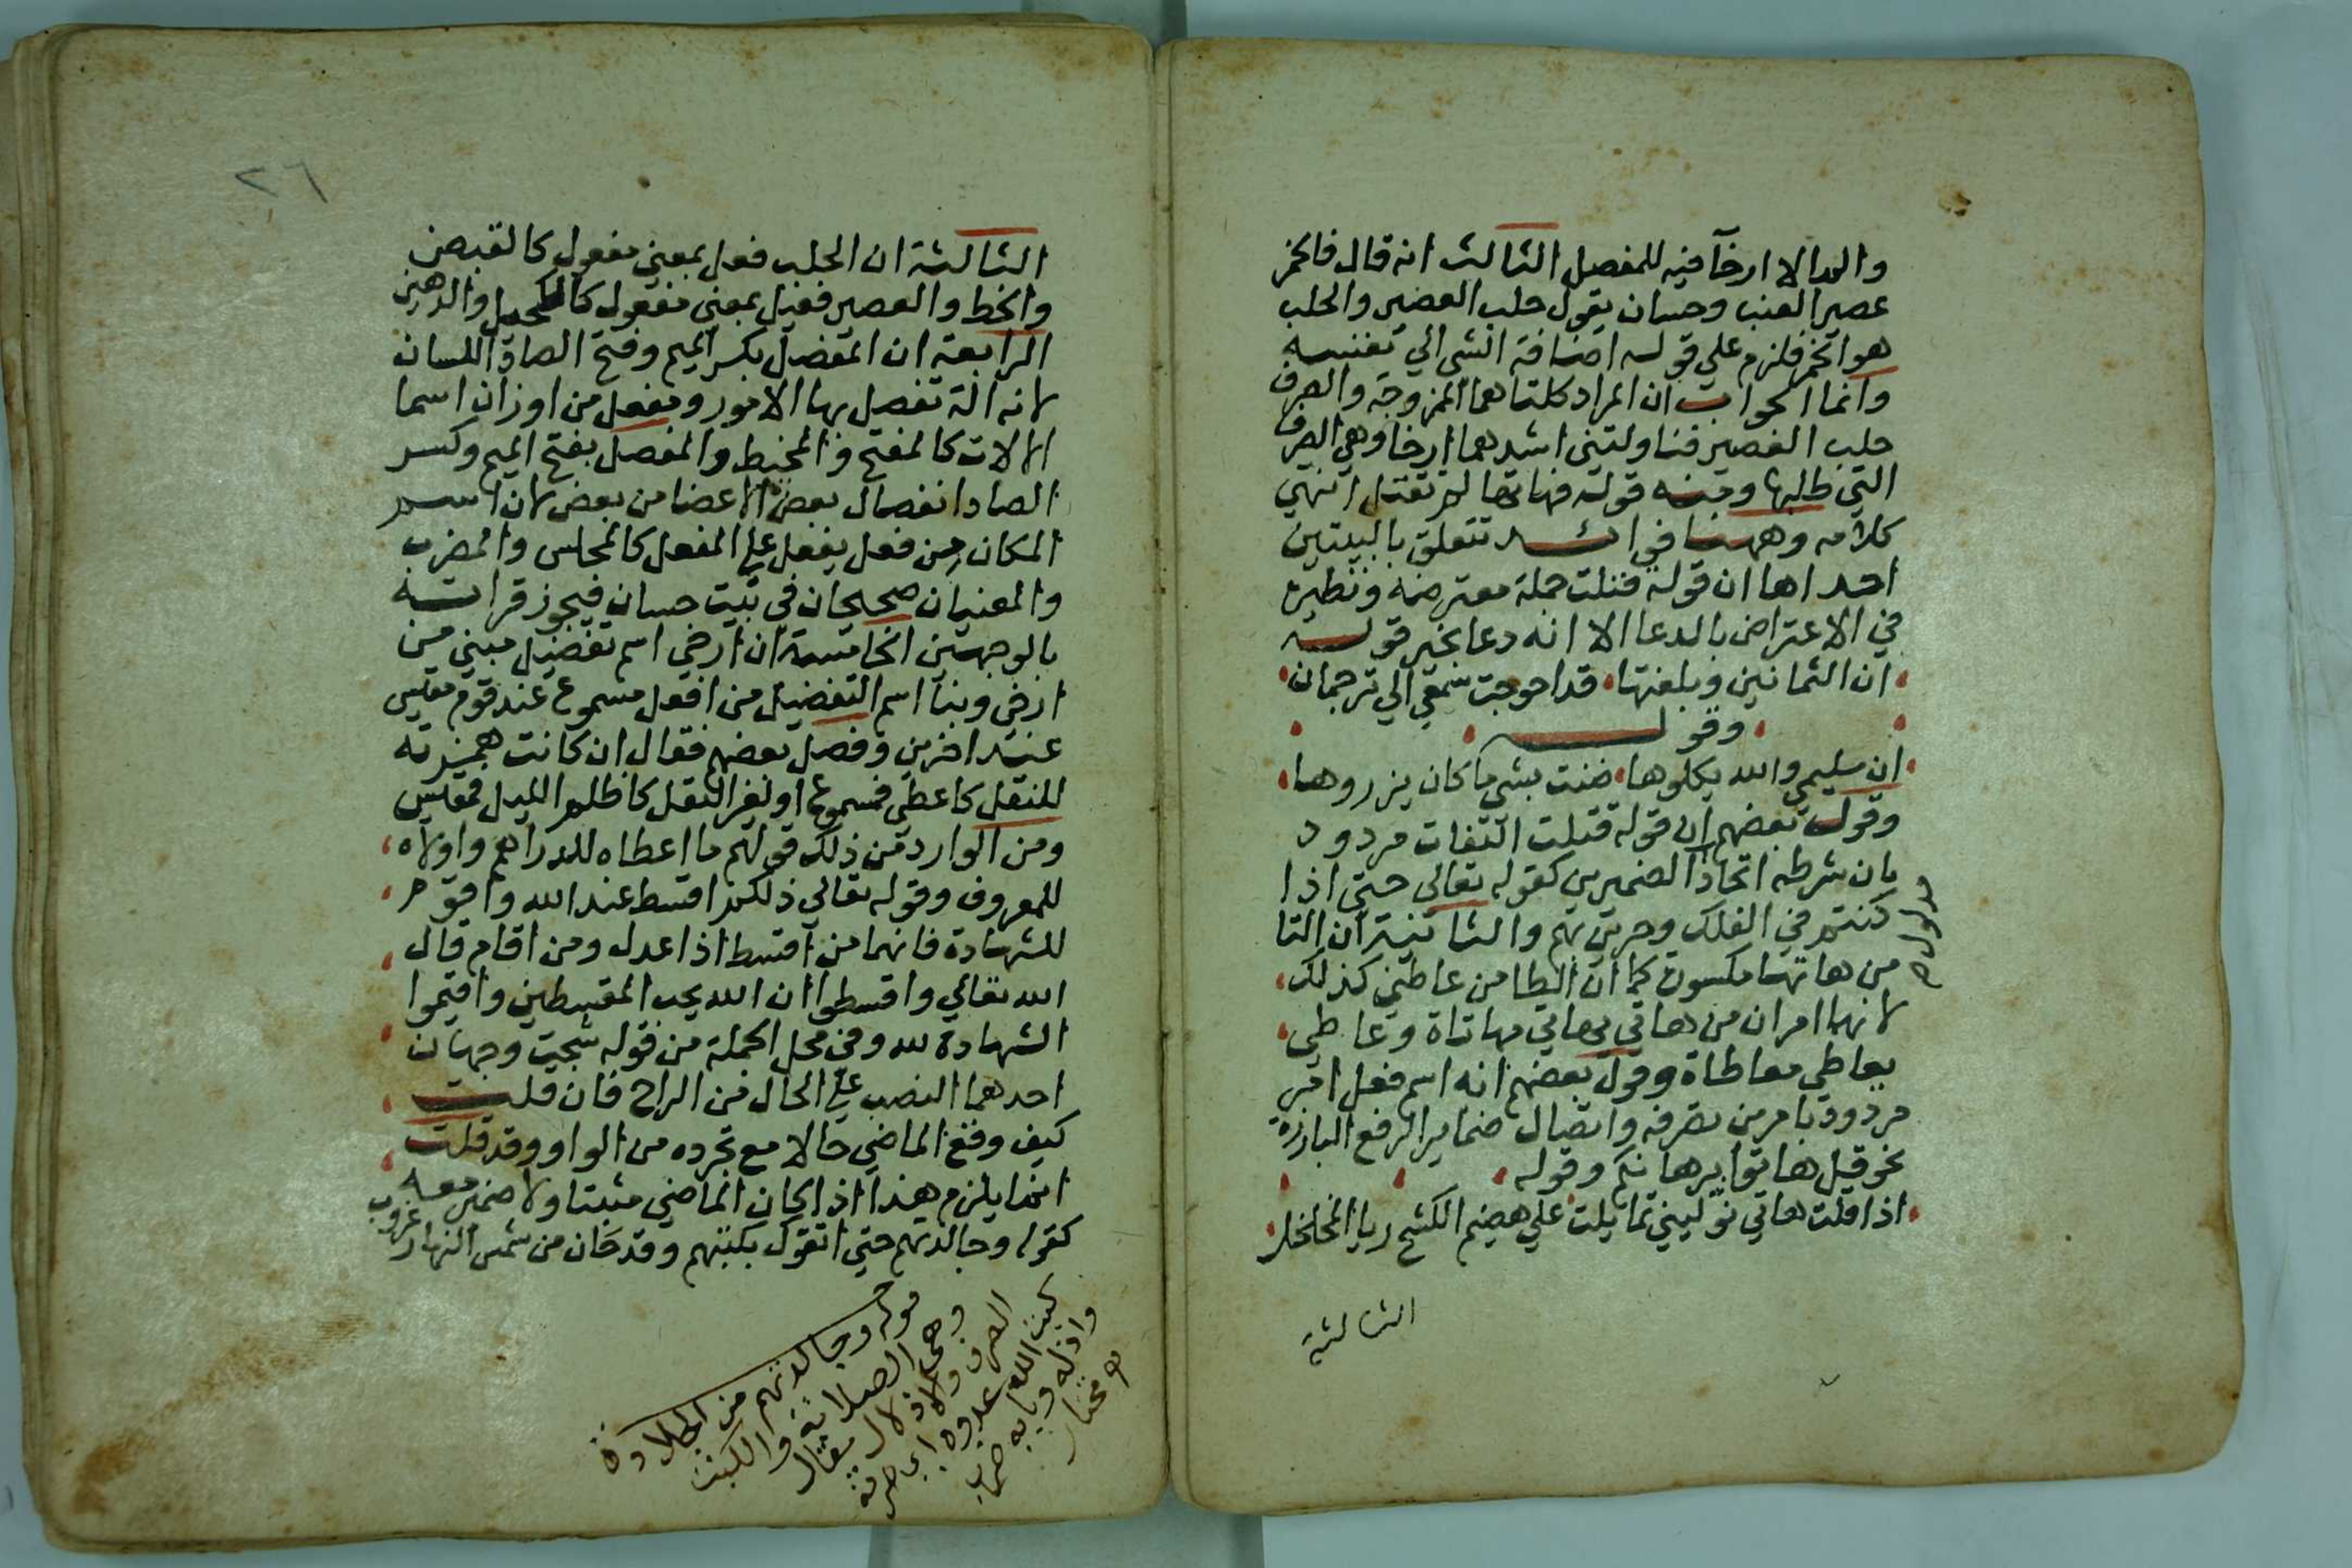 والمدالا ارخآ فيه للمفصل الثالث انه قال فالخمر
عصير العنب وحسان يقول حلب العصير والحلب
هو الخمر فلزم علي قوله اضافة الشي الي نفسه
وانما الجواب ان المراد كلتاهما الممزوجة والصرف
حلب العصير فناولتني اشدهما ارخا وهي الصرف
التي طلبها ومنه قوله فهاتها لم تقتل انتهي
كلامه وههنا فوائد تتعلق بالبيتين
احداها ان قوله قتلت جملة معترضة ونظيره
في الاعتراض بالدعا الا انه دعا بخير قوله
ان الثمانين وبلغتها قد احوجت سمعي الي ترجمان
وقوله
ان سليمي والله يكلوها ضنت بشي ما كان يزروها
وقول بعضهم ان قوله قتلت التفات مردود
بان شرطه اتحاد الضميرين كقوله تعالي حتي اذا
مدلول ص
كنتم في الفلك وجرين بهم والثانية ان التا
من هاتهما مكسورة كما ان الطا من عاطني كذلك
لانهما امران من هاتي يهاتي مهاتاة وعاطي
يعاطي معاطاة وقول بعضهم انه اسم فعل امر
مردود بامرين تصرفه واتصال ضماير الرفع البارزة
نحو قل هاتوا برهانكم وقوله
اذا قلت هاتي نوليني تمايلت علي هضيم الكشح ريا المخلخل
الثالثة
٢٦
الثالثة ان الحلب فعل بمعني مفعول كالقبض
والخط والعصير فعيل بمعني مفعول كالكحيل والدهين
الرابعة ان المفصل بكسر الميم وفتح الصاد اللسان
لانه الة تفصل بها الامور ومفعل من اوزان اسما
الالات كالمفتح والمخيط والمفصل بفتح الميم وكسر
الصاد انفصال بعض الاعضا من بعض لان اسم
المكان من فعل يفعل علي المفعل كالمجلس والمضرب
والمعنيان صحيحان في بيت حسان فيجوز قراته
بالوجهين الخامسة ان ارخي اسم تفضيل مبني من
ارخي وبنا اسم التفضيل من افعل مسموع عند قوم مقيس
عند اخرين وفصل بعضهم فقال ان كانت همزته
للنقل كاعطي فمسموع او لغير النقل كاظلم الليل فمقيس
ومن الوارد من ذلك قولهم ما اعطاه للدراهم واولاه
للمعروف وقوله تعالي ذلكم اقسط عند الله واقوم
للشهادة فانهما من اقسط اذا عدل ومن اقام قال
الله تعالي واقسطوا ان الله يحب المقسطين واقيموا
الشهادة لله وفي محل الجملة من قوله شجت وجهان
احدهما النصب علي الحال من الراح فان قلت
كيف وقع الماضي حالا مع تجرده من الواو وقد قلت
انما يلزم هذا اذا كان الماضي مثبتا ولا ضمير معه
كقوله وجالدتهم حتي اتقوك بكبتهم وقد حان من شمس النهار غروب
قوله وجالدتهم من المجالدة
وهي الصلابة والكبت
الصرف والاذلال يقال
كبت الله عدوه اي صرفه
واذله وبابه ضرب
مختار